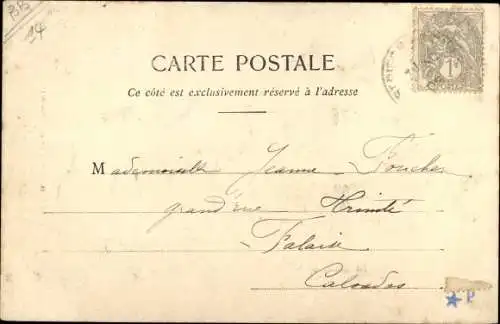 14
CARTE POSTALE
Ce côté est exclusivement réservé à l'adresse
Mademoiselle Jeanne Foucher
grand'rue Trinité
Falaise
Calvados